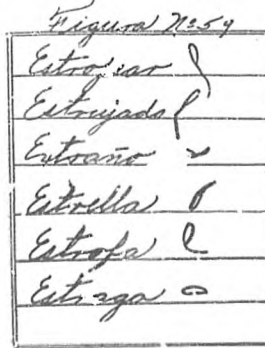 Figura Nº 59
Estropear
Estrujado
Extraño
Estrella
Estrofa
Estraga